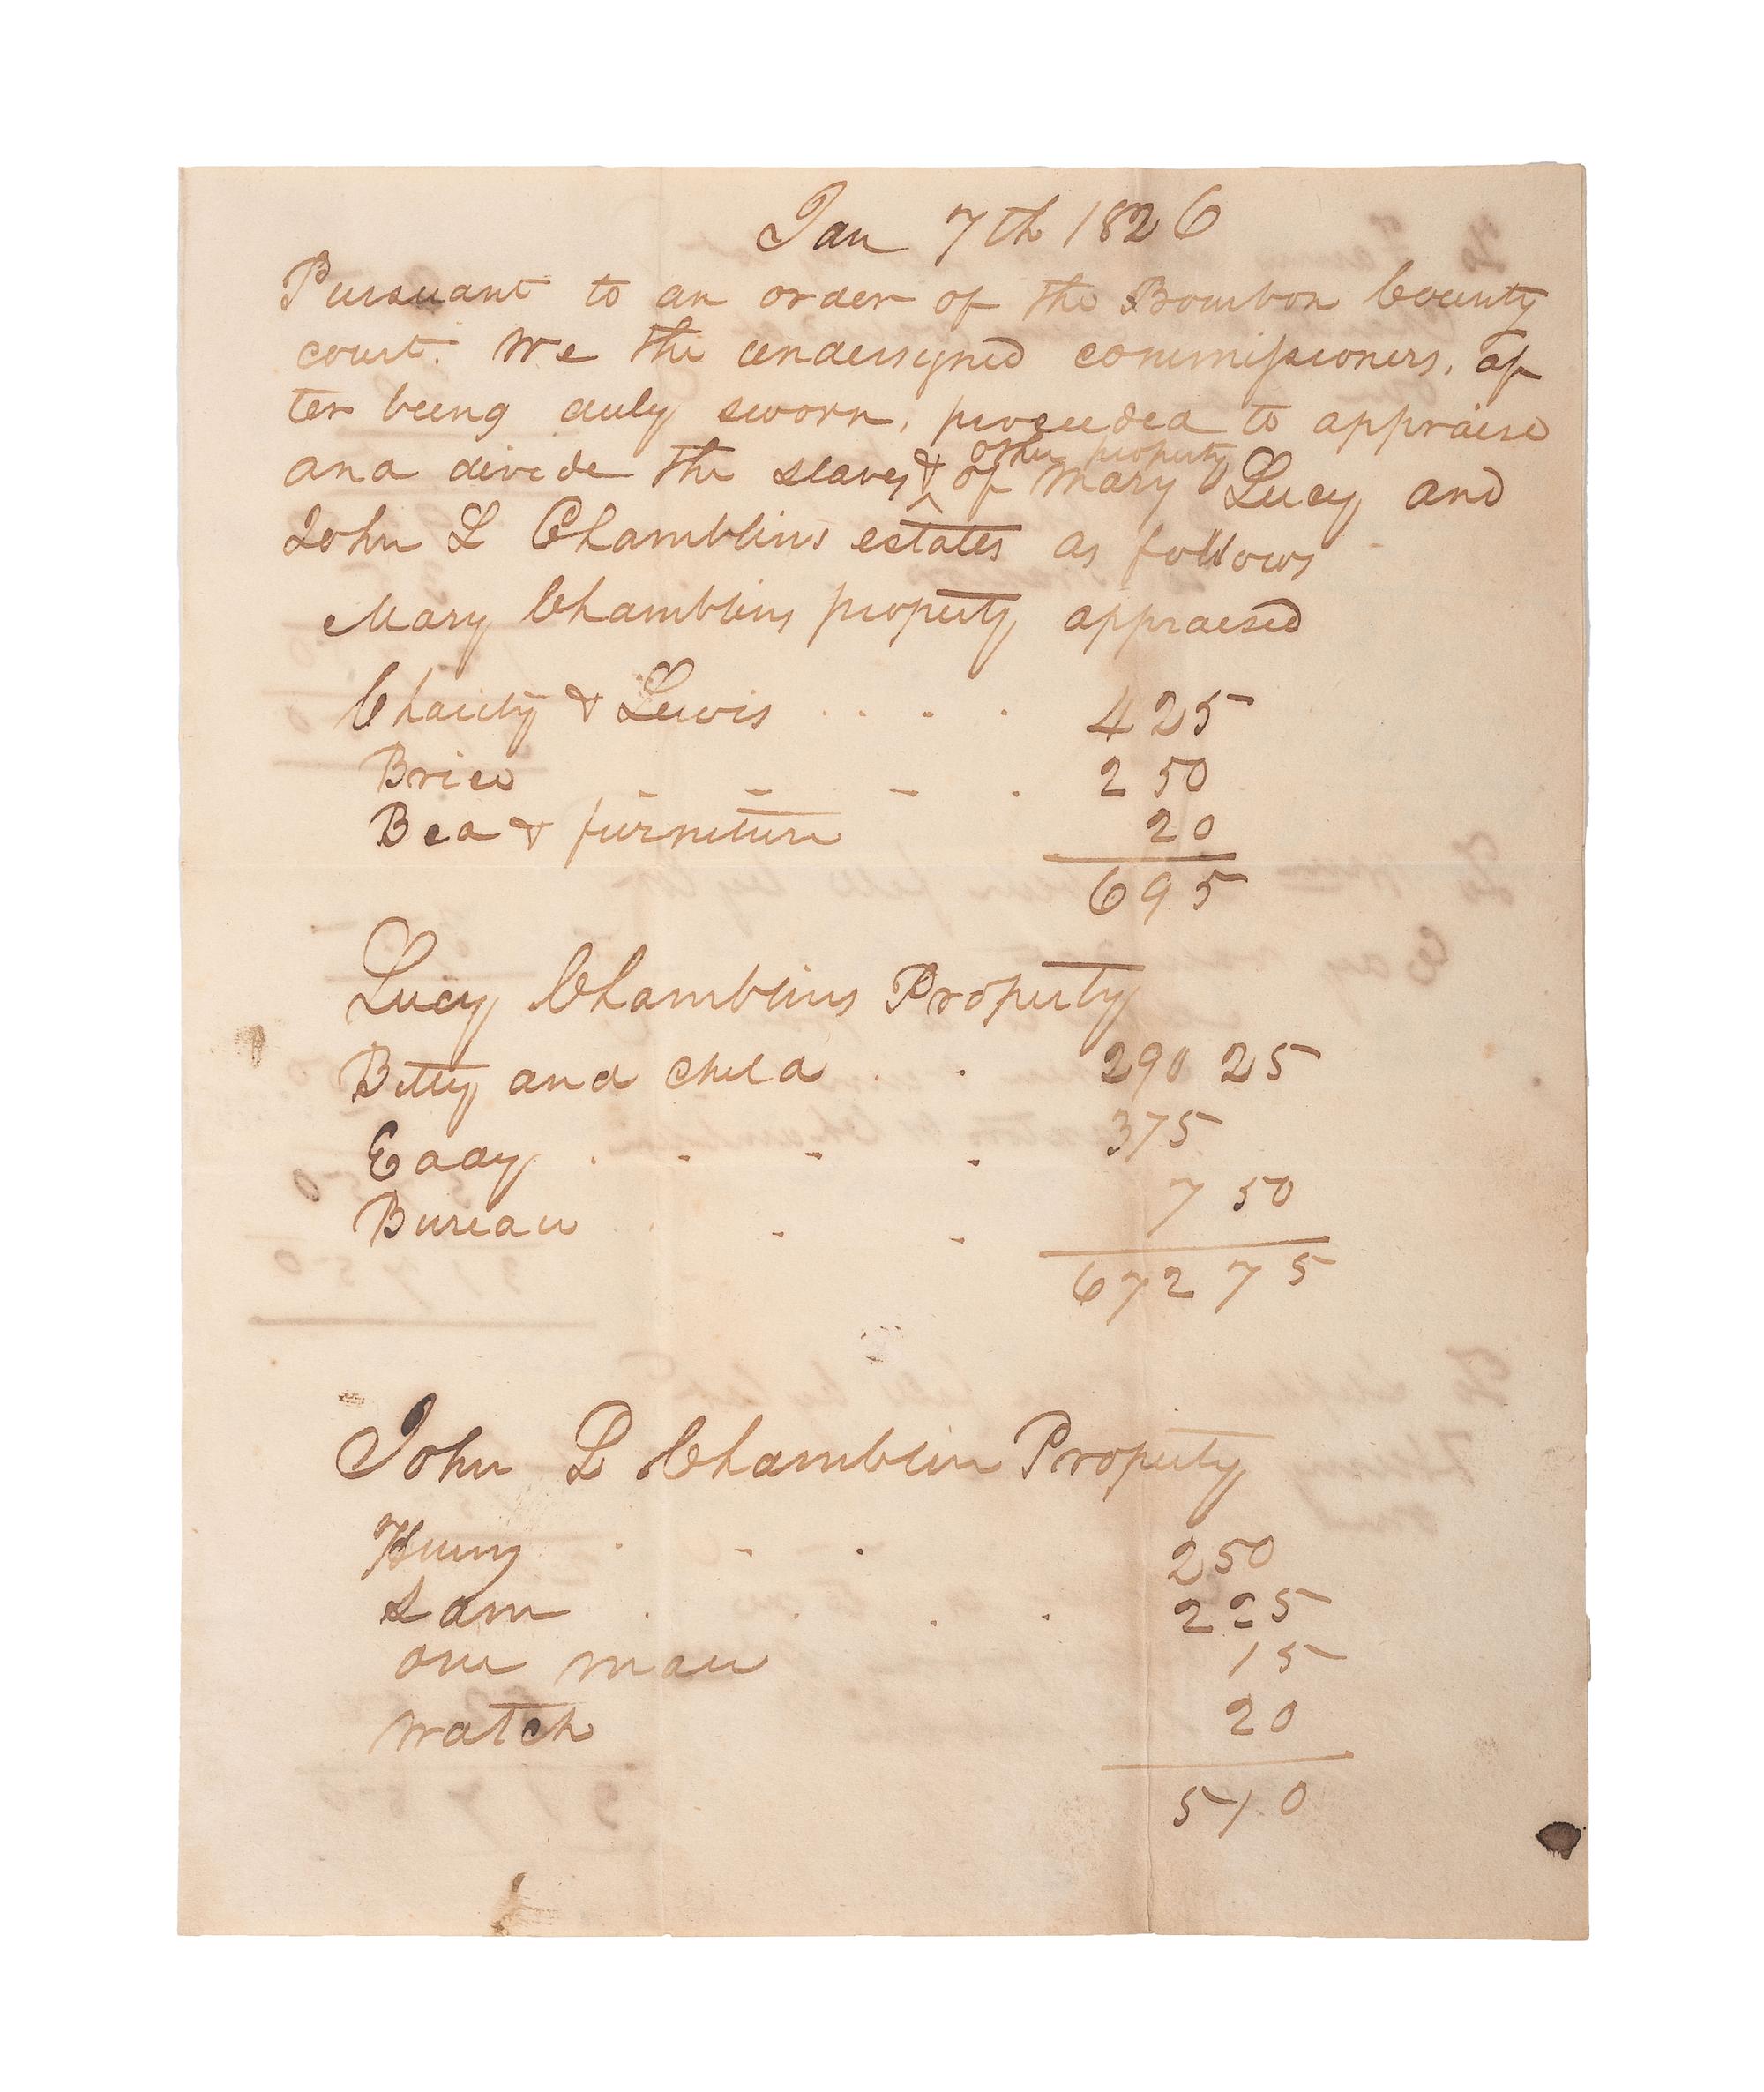 Jan 7th 1826
Pursuant to an order of the Bourbon County
court. We the undersigned commissioners, af
ter being duly sworn, proceeded to appraise
other property
and divide the slaves & of Mary Lucy and
John L Chamblins estates as follows
Mary Chamblins property appraised
Charity & Lewis .... 425
Brice _ _ _ . 250
Bed & furniture 20
695
Lucy Chamblins Property
Betty and child . . 290 25
Eady . - - - 375
Bureau . - - 7 50
672 75
John L Chamblin Property
Henry . - . 250
Sam . . . . 225
one mare 15
watch 20
510